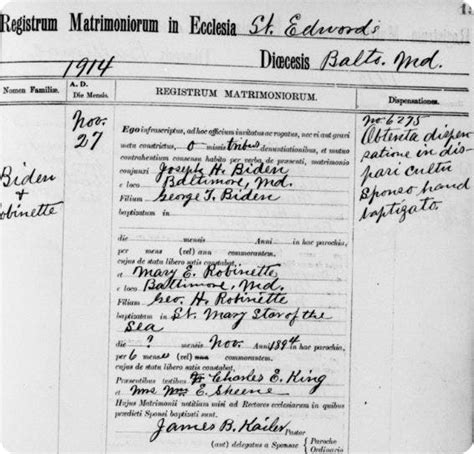 1
Registrum Matrimoniorum in Ecclesia St. Edwards
Diœcesis Balto. Md.
1914
Nomen Familiæ.
A. D.
Die Mensis.
REGISTRUM MATRIMONIORUM.
Dispensationes.
Nov.
27
Biden
+
obinette
Ego infrascriptus, ad hoc officium invitatus ac rogatus, nec ri aut gravi
metu constrictus, 0 missis tribus denuntiationibus, et mutuo
contrahentium consensu habito per verba de præsenti, matrimonio
conjunxi Joseph H. Biden
e loco Baltimore, Md.
Filium George T. Biden
baptizatum in
die mensis Anni in hac parochia,
per mens (vel) ann commorantem.
cujus de statu libero satis constabat,
et Mary E. Robinette
e loco Baltimore, Md.
Filiam Geo. H. Robinette
baptizatam in St. Mary Star of the
Sea
die ? mensis Nov. Anni 1894 in hac parochia,
per 6 menses (vel) ann commorantem.
cujus de statu libero satis constabat.
Præsentibus testibus Charles E. King
et Mrs Wm E. Sheene
Hujus Matrimonii notitium misi ad Rectores ecclesiarum in quibus
prædicti Sponsi baptizati sunt.
James B. Kailer
Pastor
(aut) delegatus a Sponsae { Parocho
Ordinario
No 6275
Obtenta dispen
satione in dis
pari cultu
Sponso haud
baptizato